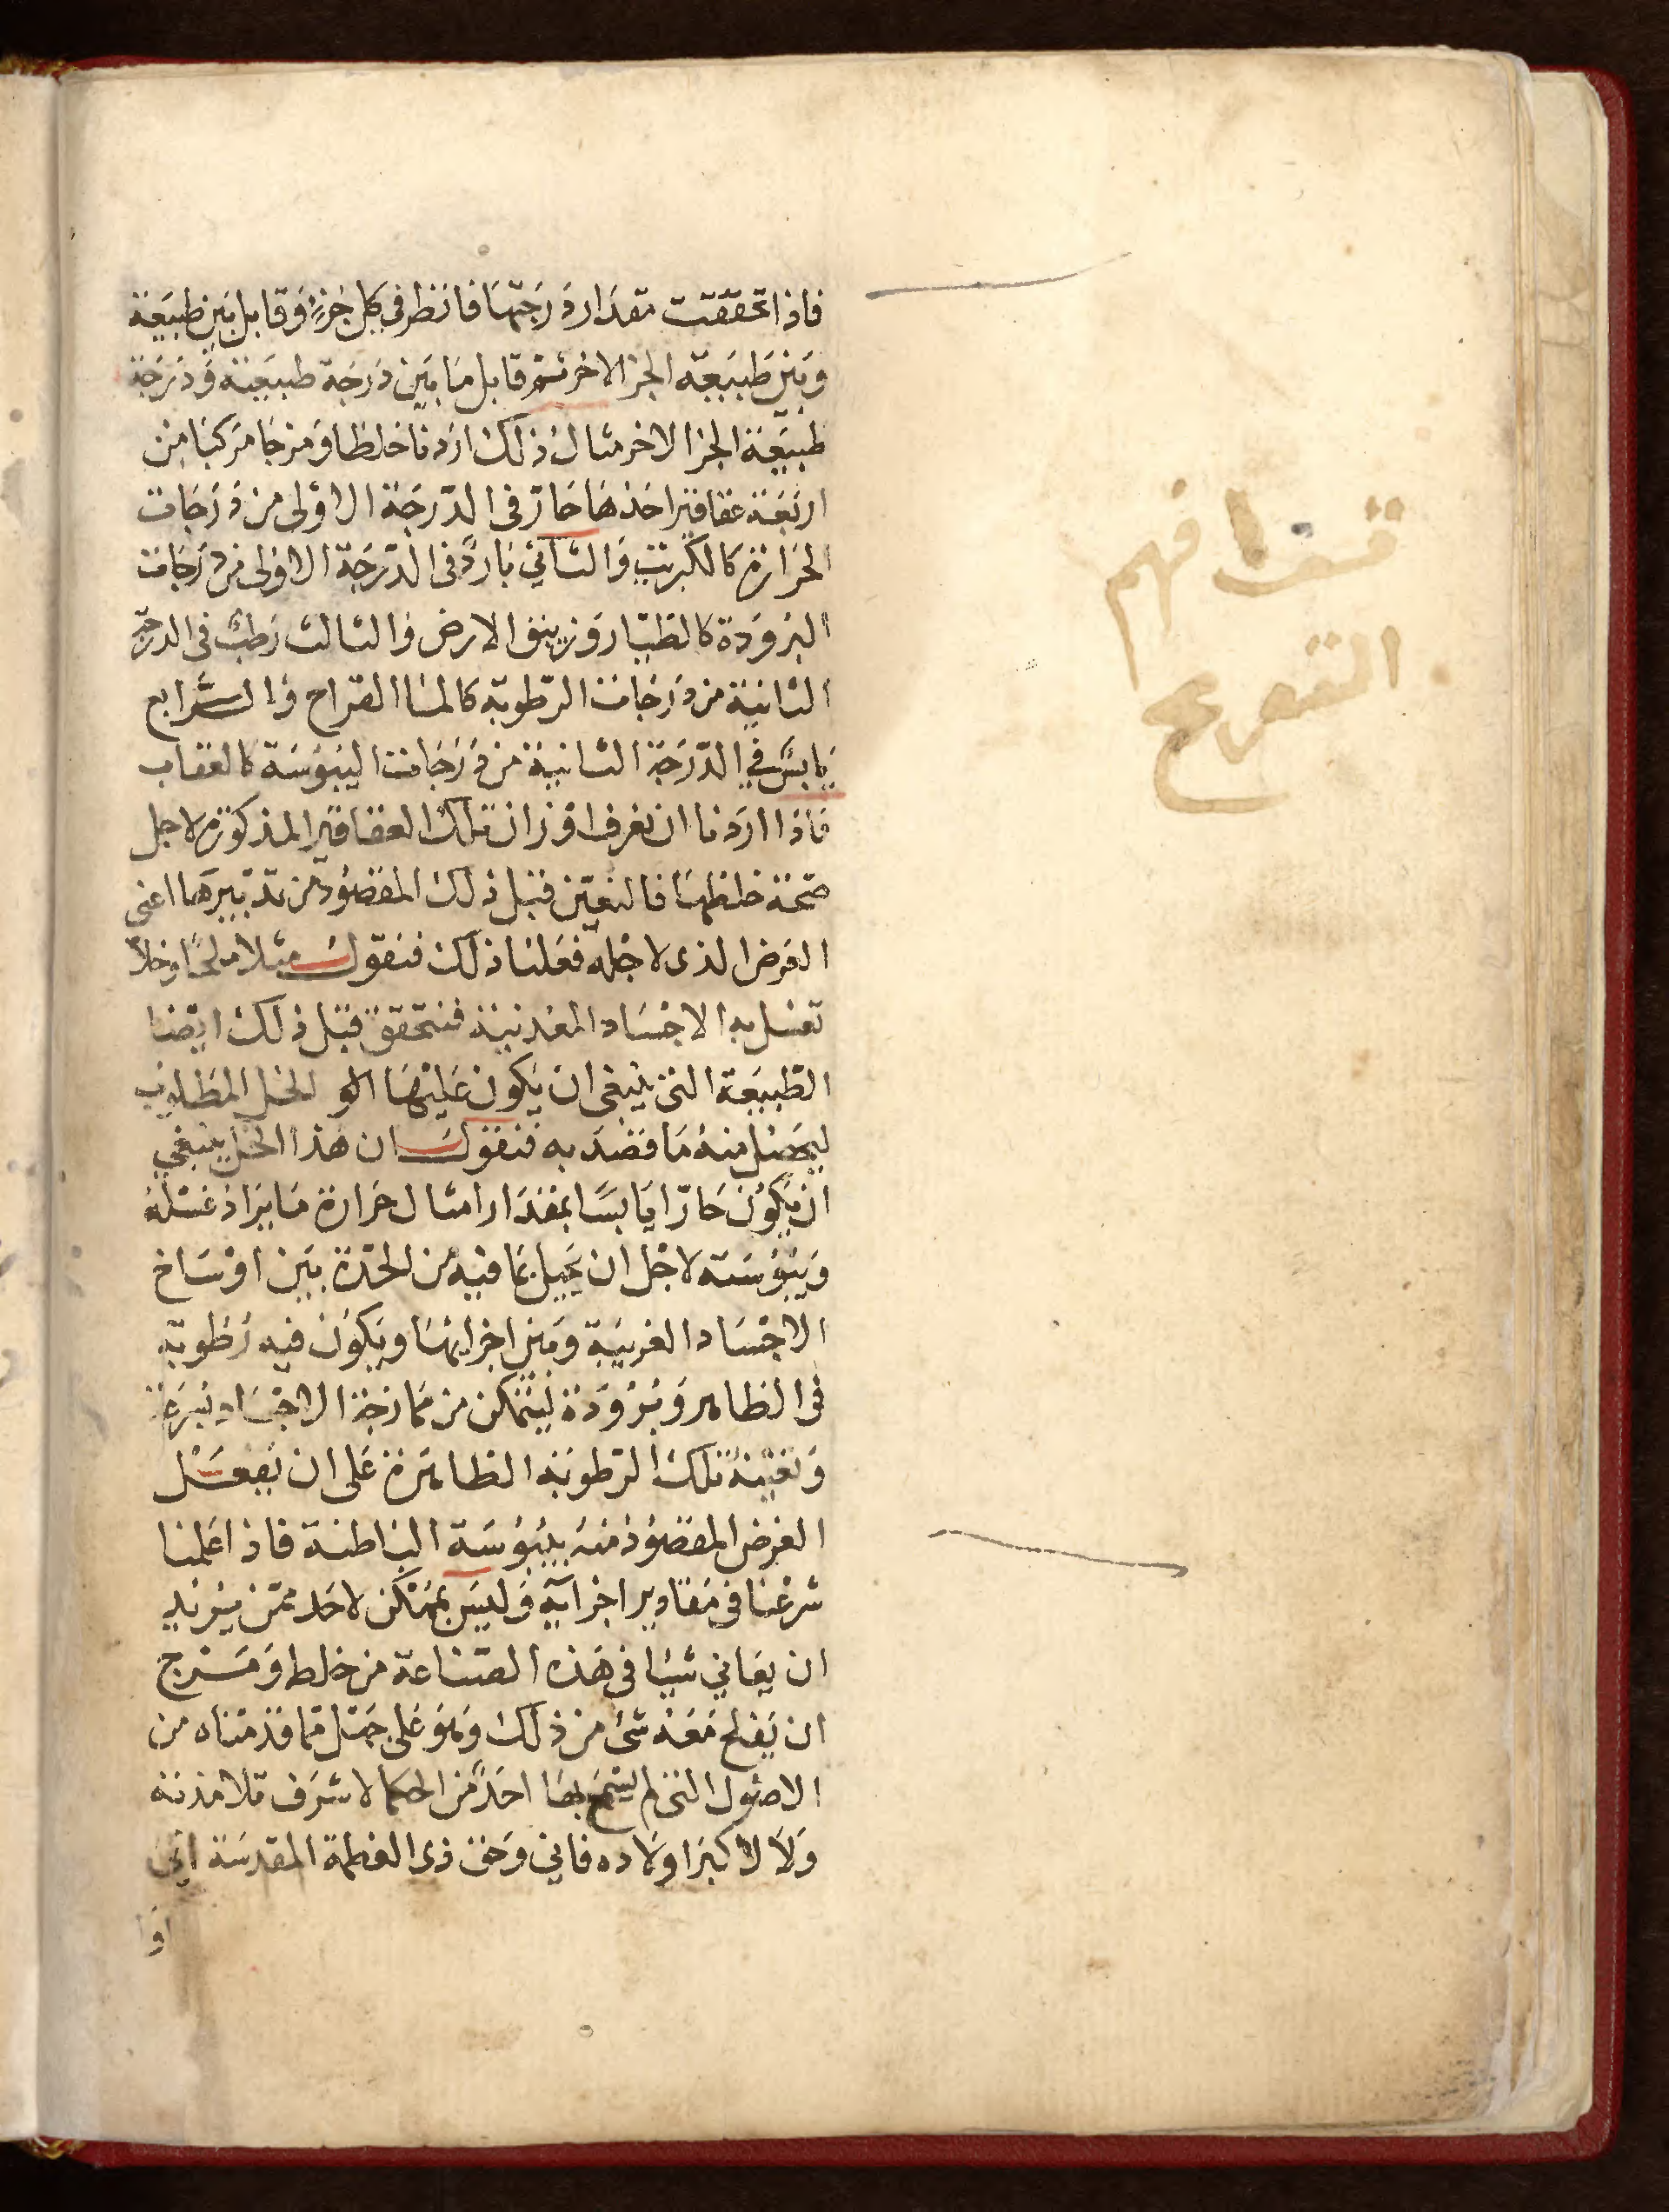 فاذا تحققت مقدار درجتها فانظر في كل جزء وقابل بين طبيعة
وبين طبيعة الجز الاخر ثم قابل ما بين درجة طبيعته ودرجة
طبيعة الجز الاخر مثال ذلك اردنا خلطا ومزجا مركبا من
اربعة عقاقير احدها حار في الدرجة الاولى من درجات
الحرارة كالكبريت والثاني بارد في الدرجة الاولى من درجات
البرودة كالطيار وزيبق الارض والثالث رطب في الدرجة
الثانية من درجات الرطوبة كالما القراح والرابع
يابس في الدرجة الثانية من درجات اليبوسة كالعقاب
فاذا اردنا ان نعرف اوزان تلك العقاقير المذكورة لاجل
صحة خلطها فالنعين قبل ذلك المقصود من تدبيرها اعني
الغرض الذي لاجله فعلنا ذلك فنقول مثلا ملحا وخلا
تغسل به الاجساد المعدنية فنتحقق قبل ذلك ايضا
الطبيعة التي ينبغي ان يكون عليها الخل المطلوب
ليحصل منه ما قصد به فنقول ان هذا الخل ينبغي
ان يكون حارا يابسا بمقدار امثال حرارة ما يراد غسله
ويبوسته لاجل ان يحيل بما فيه من الحدة بين اوساخ
الاجساد الغريبة وبين اجزايها ويكون فيه رطوبة
في الظاهر وبرودة ليتمكن من ممازجة الاجساد بسرعة
وتعينه تلك الرطوبة الظاهرة على ان يفعل
الغرض المقصود منه بيبوسة الباطنة فاذا علمنا
شرعنا في مقادير اجزآيه وليس بممكن لاحد ممن يريد
ان يعاني شيا في هذه الصناعة من خلط ومزج
ان يفلح معه شى من ذلك وهو على جهل مما قدمناه من
الاصول التي لم يسمح بها احد من الحكما لاشرف تلامذته
ولا لاكبر اولاده فاني وحق ذي العظمة المقدسة اني
وا
افهم
التنويع